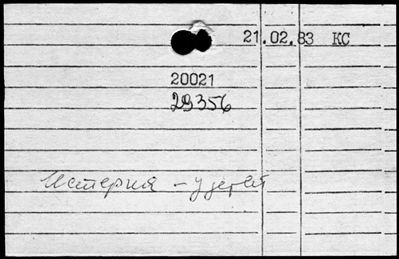 21.02.83 КС
20021
29356
Истерия - у детей